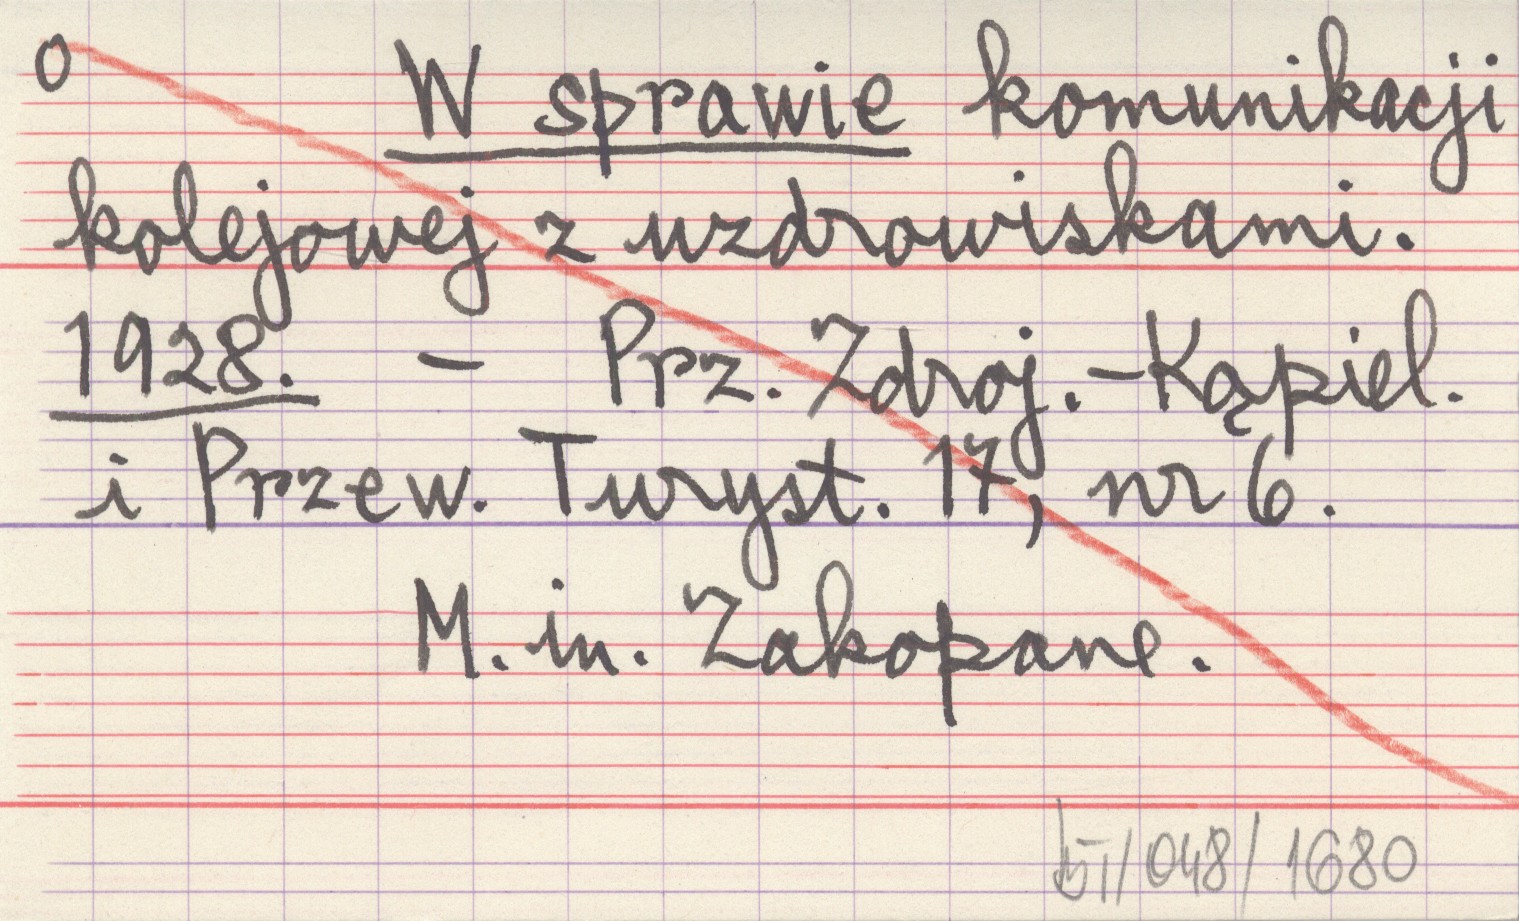 0 W sprawie komunikacji
kolejowej z uzdrowiskami.
1928. - Prz. Zdroj.-Kąpiel.
i Przew. Turyst. 17, nr 6.
M. in. Zakopane.
/048/1680